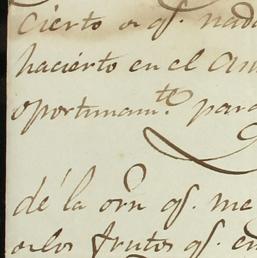 cierto o qᵉ. nad
hacierto en el An
oportunamᵗᵉ. para
dé la orⁿ qᵉ. me
a los frutos qᵉ. en